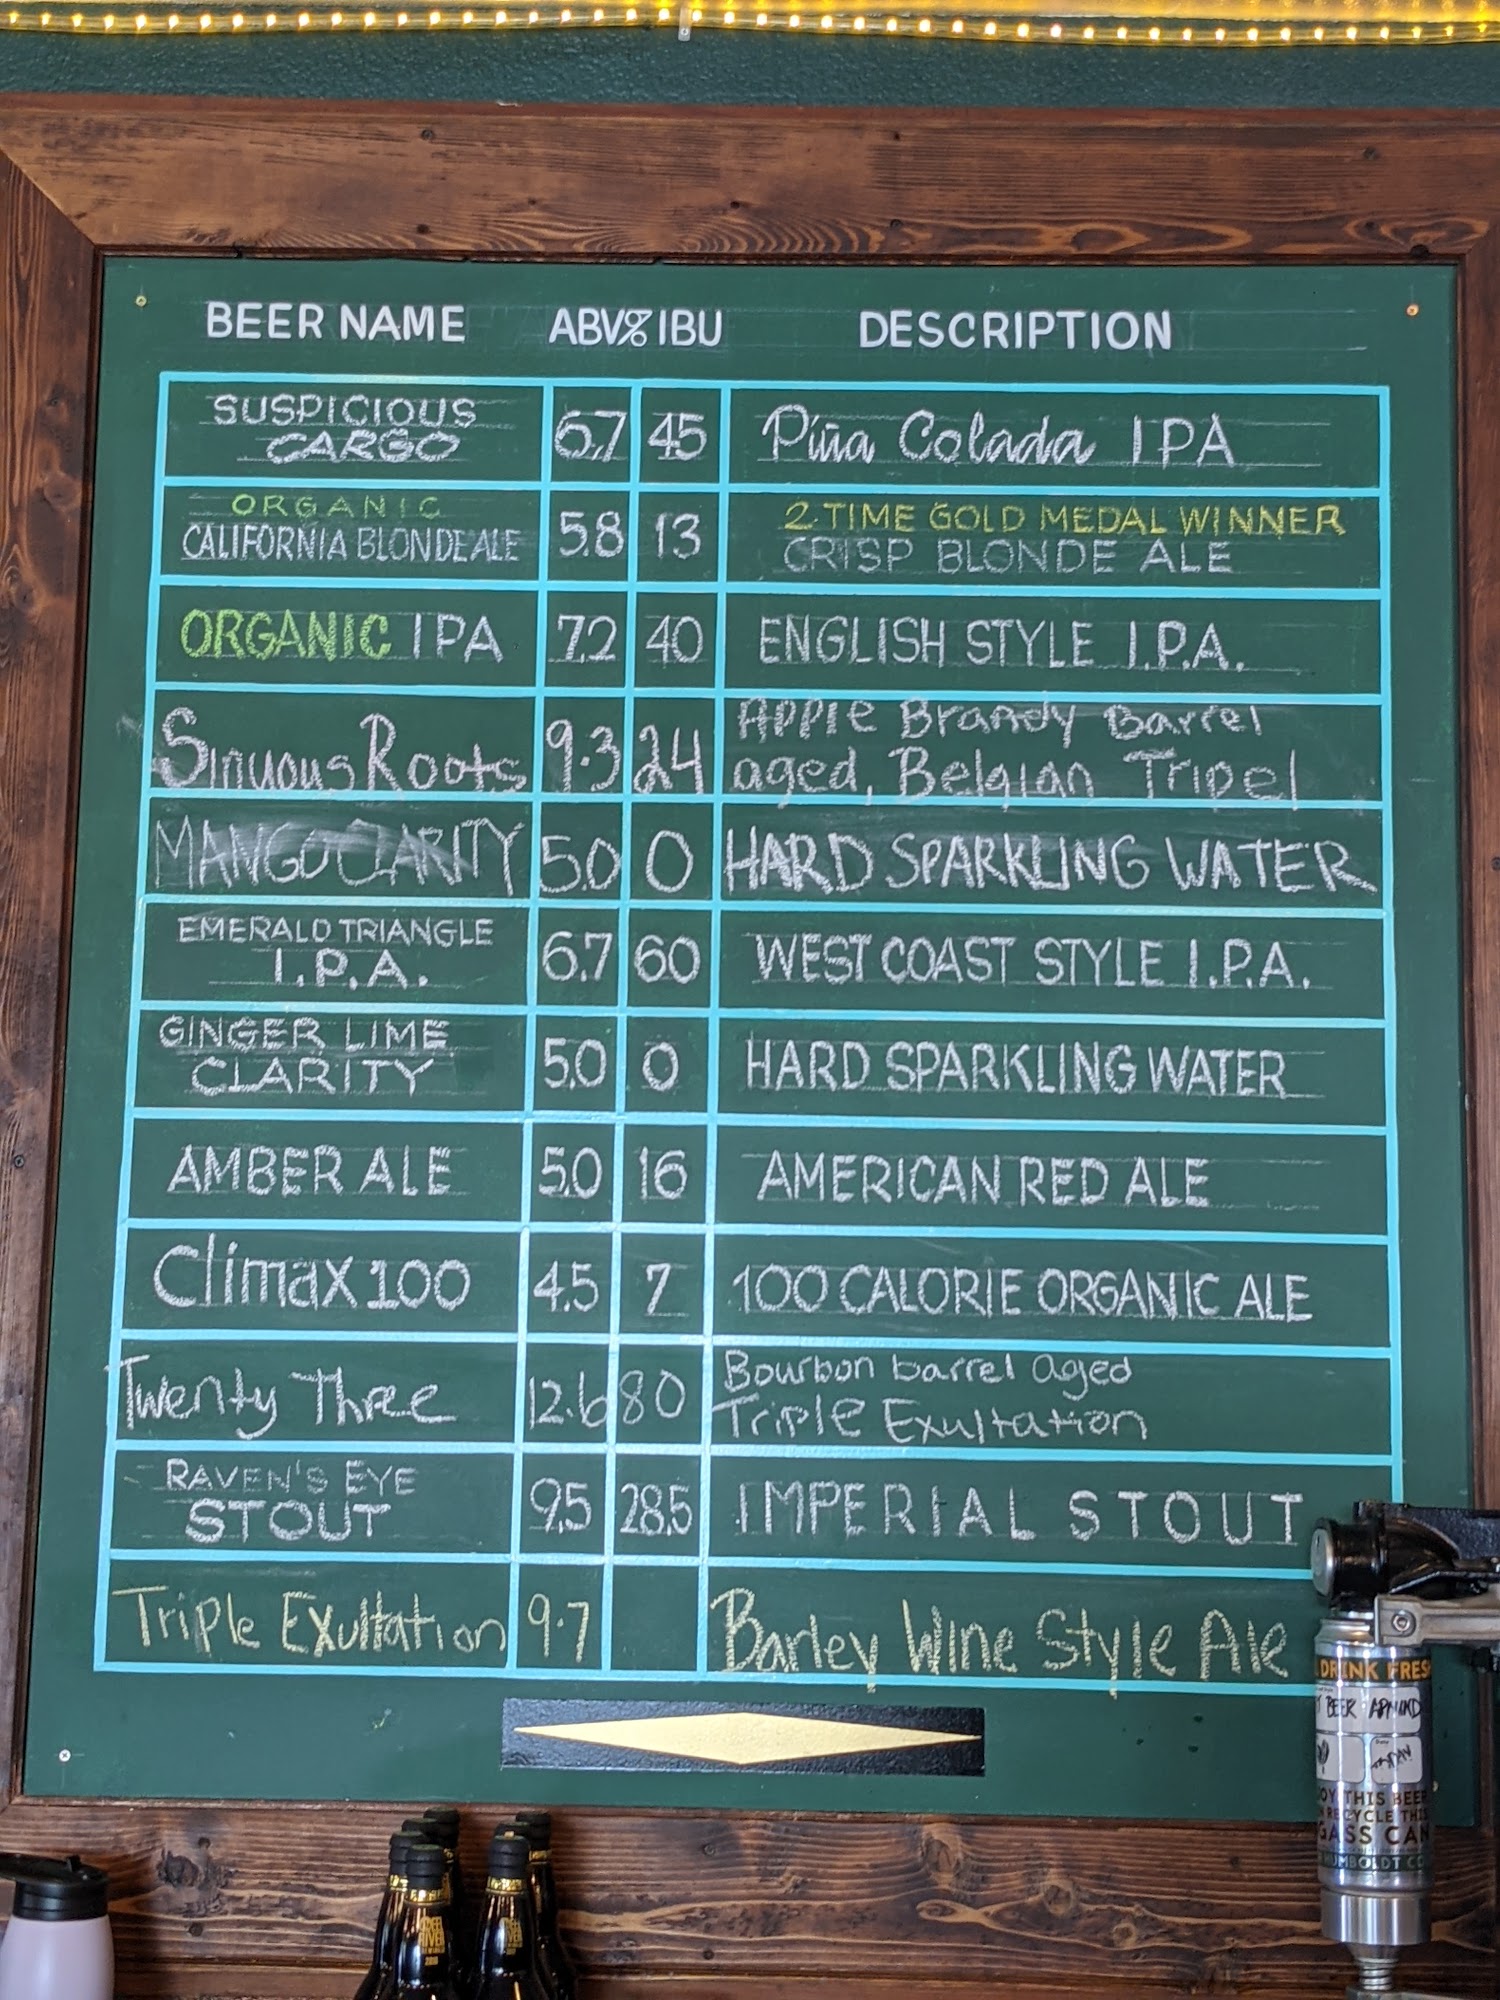 BEER NAME ABV% IBU DESCRIPTION
SUSPICIOUS
CARGO 6.7 45 Piña Colada IPA
ORGANIC 2-TIME GOLD MEDAL WINNER
CALIFORNIA BLONDE ALE 5.8 13 CRISP BLONDE ALE
ORGANIC IPA 7.2 40 ENGLISH STYLE I.P.A.
Apple Brandy Barrel
Sinuous Roots 9.3 24 aged, Belgian Tripel
MANGO CLARITY 5.0 0 HARD SPARKLING WATER
EMERALD TRIANGLE
I.P.A. 6.7 60 WEST COAST STYLE I.P.A.
GINGER LIME
CLARITY 5.0 0 HARD SPARKLING WATER
AMBER ALE 5.0 16 AMERICAN RED ALE
Climax 100 4.5 7 100 CALORIE ORGANIC ALE
Bourbon barrel aged
Twenty Three 12.6 80 Triple Exultation
RAVEN'S EYE
STOUT 9.5 28.5 IMPERIAL STOUT
Triple Exultation 9.7 Barley Wine Style Ale
DRINK FRES
BEER
OY THIS BEER
RECYCLE THIS
GASS CAN
HUMBOLDT CO